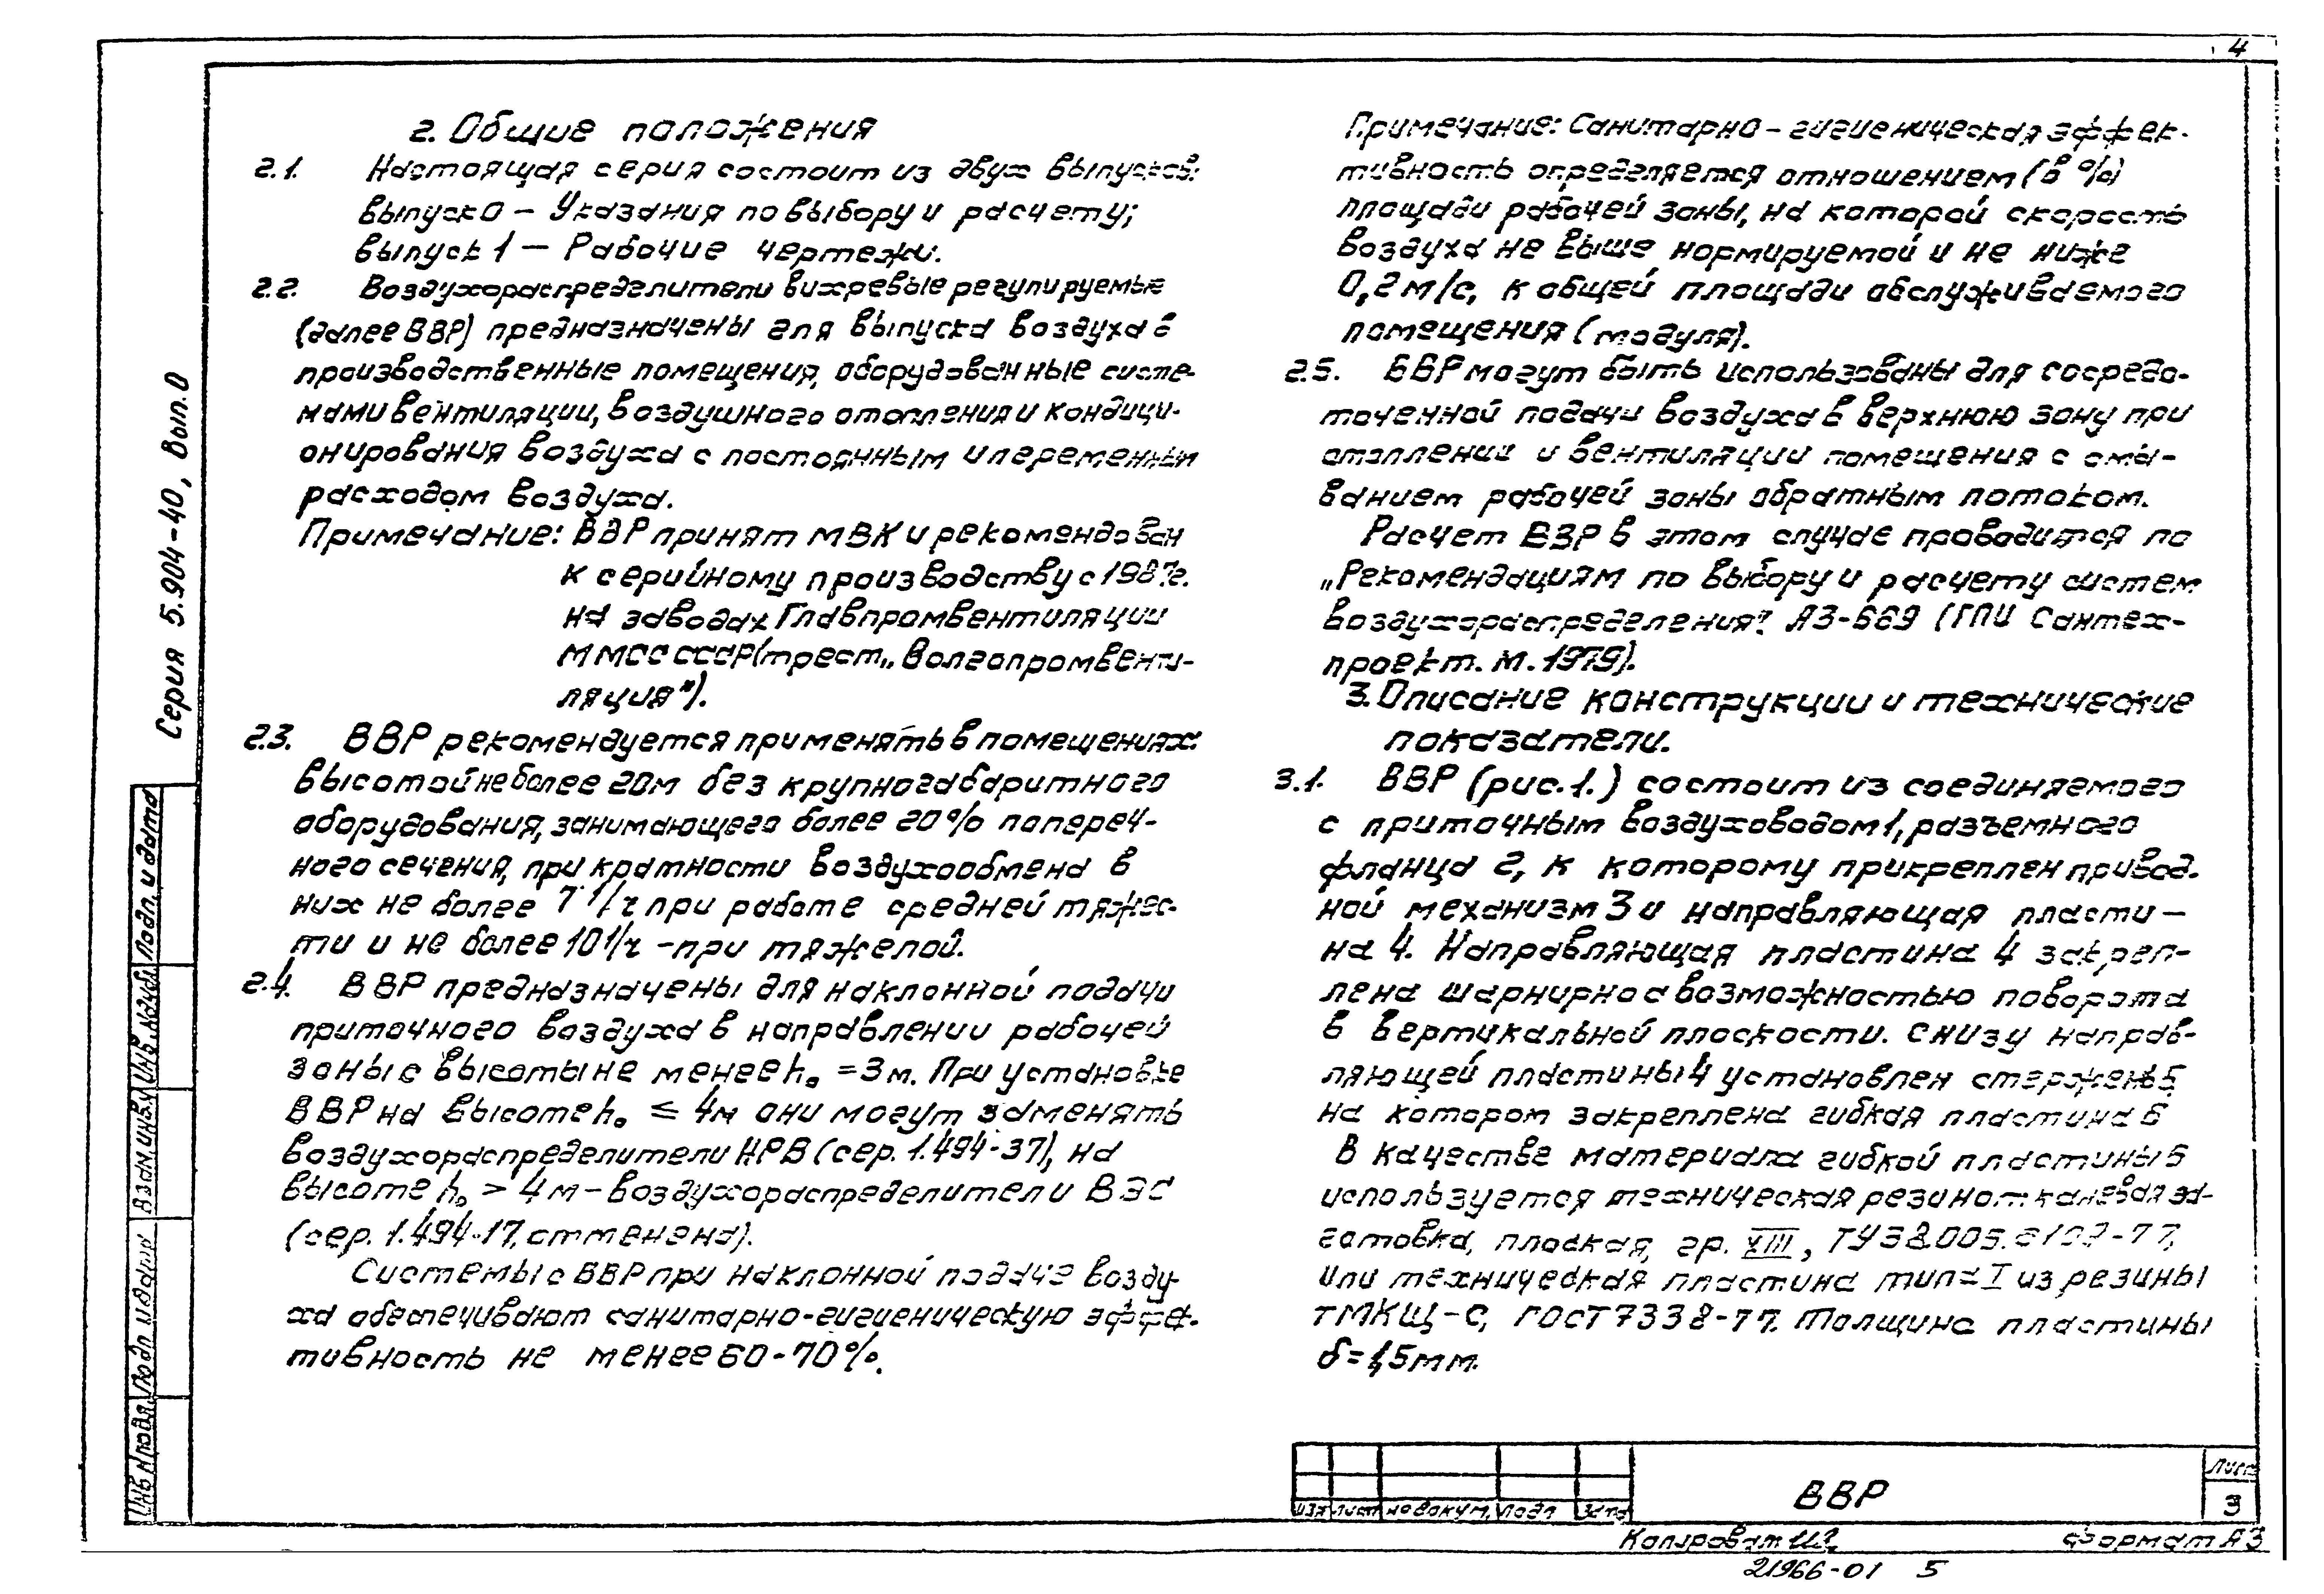 4
2. Общие положения
2.1. Настоящая серия состоит из двух выпусков:
выпуск 0 – Указания по выбору и расчету;
выпуск 1 – Рабочие чертежи.
2.2. Воздухораспределители вихревые регулируемые
(далее ВВР) предназначены для выпуска воздуха в
производственные помещения, оборудованные систе-
мами вентиляции, воздушного отопления и кондици-
онирования воздуха с постоянным и переменным
расходом воздуха.
Примечание: ВВР принят МВК и рекомендован
к серийному производству с 1987г.
на заводах Главпромвентиляции
ММСС СССР (трест „Волгопромвенти-
ляция").
2.3. ВВР рекомендуется применять в помещениях
высотой не более 20м без крупногабаритного
оборудования, занимающего более 20% попереч-
ного сечения, при кратности воздухообмена в
них не более 7 1/ч при работе средней тяжес-
ти и не более 10 1/ч – при тяжелой.
2.4. ВВР предназначены для наклонной подачи
приточного воздуха в направлении рабочей
зоны с высоты не менее h₀ = 3м. При установке
ВВР на высоте h₀ ≤ 4м они могут заменять
воздухораспределители НРВ (сер. 1.494-37), на
высоте h₀ > 4м – воздухораспределители ВЭС
(сер. 1.494-17, отменена).
Системы с ВВР при наклонной подаче возду-
ха обеспечивают санитарно-гигиеническую эффек-
тивность не менее 60-70%.
Примечание: Санитарно-гигиеническая эффек-
тивность определяется отношением (в %)
площади рабочей зоны, на которой скорость
воздуха не выше нормируемой и не ниже
0,2м/с, к общей площади обслуживаемого
помещения (модуля).
2.5. ВВР могут быть использованы для сосредо-
точенной подачи воздуха в верхнюю зону при
отоплении и вентиляции помещения с омы-
ванием рабочей зоны обратным потоком.
Расчет ВВР в этом случае проводится по
„Рекомендациям по выбору и расчету систем
воздухораспределения". А3-669 (ГПИ Сантех-
проект. М. 1979).
3. Описание конструкции и технические
показатели.
3.1. ВВР (рис. 1.) состоит из соединяемого
с приточным воздуховодом 1, разъемного
фланца 2, к которому прикреплен привод-
ной механизм 3 и направляющая пласти-
на 4. Направляющая пластина 4 закреп-
лена шарнирно с возможностью поворота
в вертикальной плоскости. Снизу направ-
ляющей пластины 4 установлен стержень 5
на котором закреплена гибкая пластина 6
В качестве материала гибкой пластины 6
используется техническая резинотканевая за-
готовка, плоская, гр. XIII, ТУ38.005.
или техническая пластина типа I из резины
ТМКЩ-С, ГОСТ 7338-77. Толщина пластины
δ = 1,5мм.
Серия 5.904-40, Вып.0
Подп. и дата
Инв. № дубл.
Взам. инв. №
Подп. и дата
Инв. № подл.
Изм Лист № докум. Подп Дата
ВВР
Лист
3
Копировал
Формат А3
21966-01 5